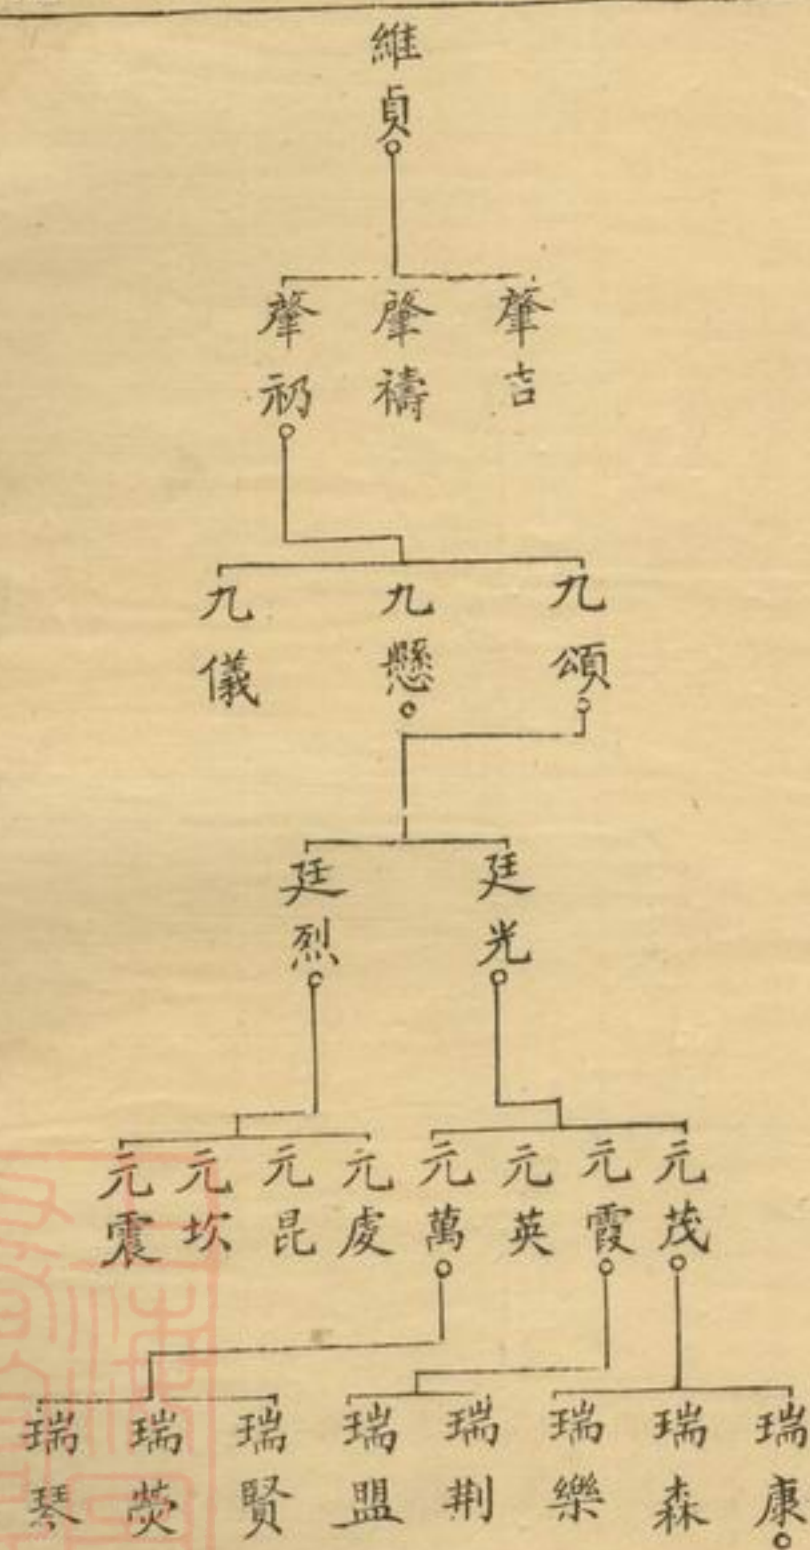 維貞
肇吉
肇禱
肇礽
九頌
九懸
九儀
廷光
廷烈
元茂
元霞
元英
元萬
元虔
元昆
元坎
元震
瑞康
瑞森
瑞樂
瑞荆
瑞盟
瑞賢
瑞熒
瑞琴